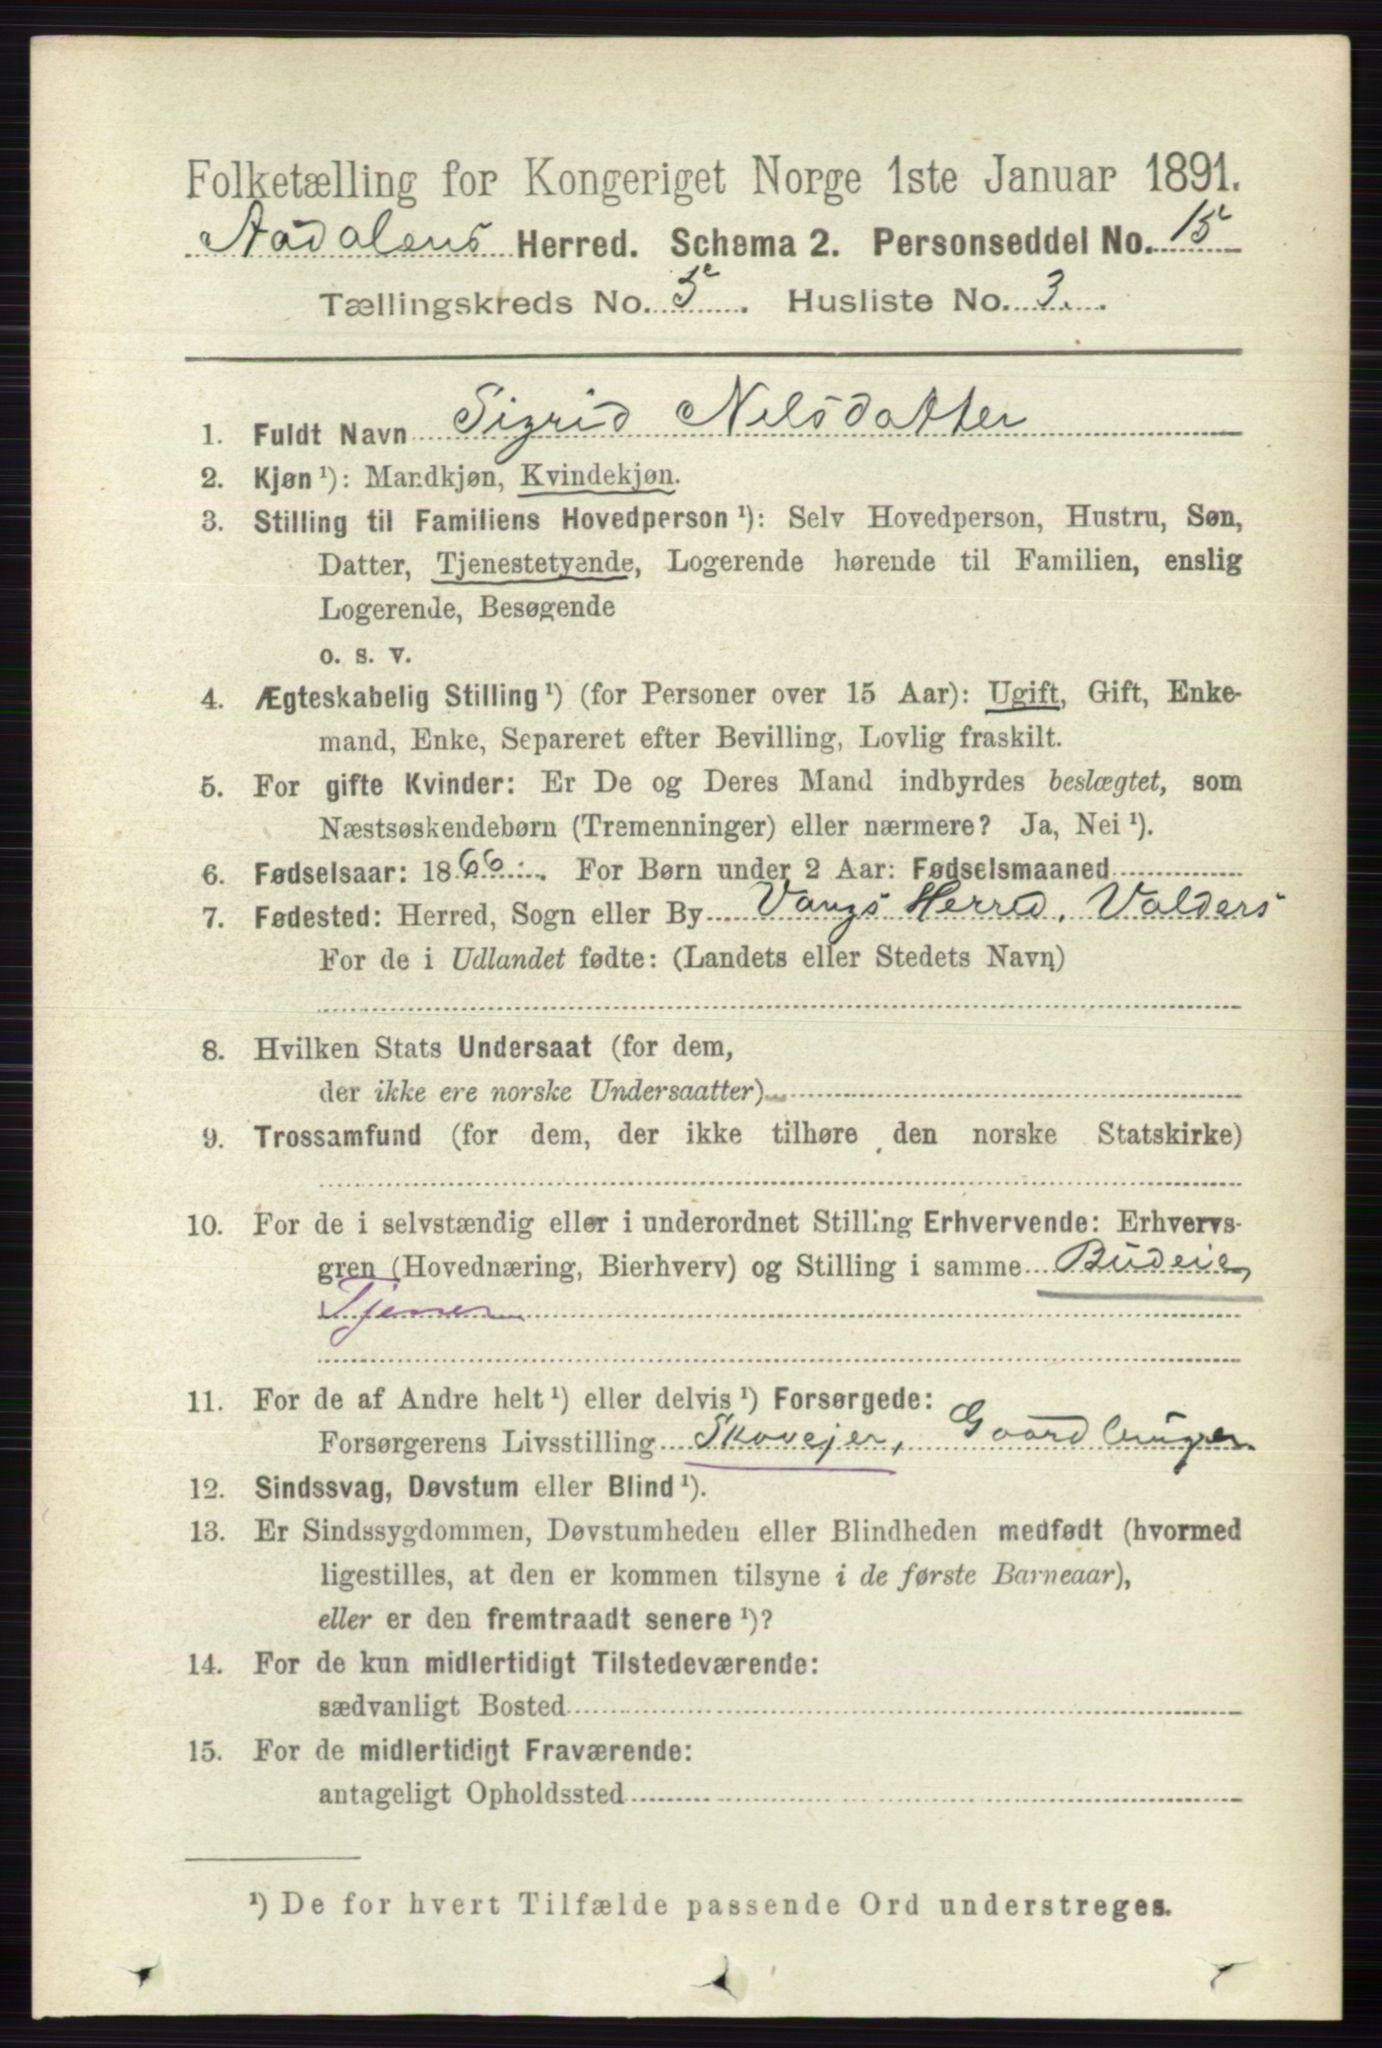 Folketælling for Kongeriget Norge 1ste Januar 1891.
Aadalens Herred. Schema 2. Personseddel No. 15
Tællingskreds No. 5. Husliste No. 3.
1. Fuldt Navn Sigrid Nelsdatter
2. Kjøn ¹): Mandkjøn, Kvindekjøn.
3. Stilling til Familiens Hovedperson ¹): Selv Hovedperson, Hustru, Søn,
Datter, Tjenestetyende, Logerende hørende til Familien, enslig
Logerende, Besøgende
o. s. v.
4. Ægteskabelig Stilling ¹) (for Personer over 15 Aar): Ugift, Gift, Enke-
mand, Enke, Separeret efter Bevilling, Lovlig fraskilt.
5. For gifte Kvinder: Er De og Deres Mand indbyrdes beslægtet, som
Næstsøskendebørn (Tremenninger) eller nærmere? Ja, Nei ¹).
6. Fødselsaar: 1866. For Børn under 2 Aar: Fødselsmaaned
7. Fødested: Herred, Sogn eller By Vangs Herred, Valders
For de i Udlandet fødte: (Landets eller Stedets Navn)
8. Hvilken Stats Undersaat (for dem,
der ikke ere norske Undersaatter)
9. Trossamfund (for dem, der ikke tilhøre den norske Statskirke)
10. For de i selvstændig eller i underordnet Stilling Erhvervende: Erhvervs-
gren (Hovednæring, Bierhverv) og Stilling i samme Budeie
Tjener
11. For de af Andre helt ¹) eller delvis ¹) Forsørgede:
Forsørgerens Livsstilling Skovejer, Gaardbruger
12. Sindssvag, Døvstum eller Blind ¹).
13. Er Sindssygdommen, Døvstumheden eller Blindheden medfødt (hvormed
ligestilles, at den er kommen tilsyne i de første Barneaar),
eller er den fremtraadt senere ¹)?
14. For de kun midlertidigt Tilstedeværende:
sædvanligt Bosted
15. For de midlertidigt Fraværende:
antageligt Opholdssted
¹) De for hvert Tilfælde passende Ord understreges.